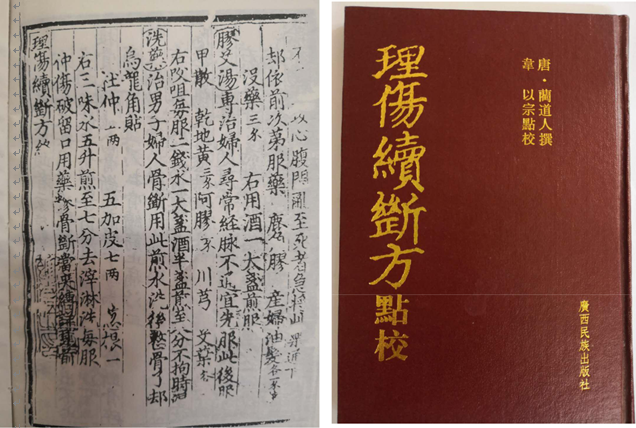 以心腹悶亂至死者急
却依前次第服藥 麝 膠 產婦油髮
沒藥 右用酒一大盞煎服
膠艾湯專治婦人尋常經脈不通宜先服此後服
甲散 乾地黃 阿膠 川芎 艾葉
右㕮咀每服一錢水一大盞酒半盞煎至八分不拘時
洗藥治男子婦人骨斷用此煎水洗後整骨了却
烏龍角貼
五加皮七兩
右三味水五升煎至七分去滓淋洗每服
冲傷破留口用藥 骨斷當夾縛
理傷續斷方
唐·藺道人撰
韋以宗點校
理傷續斷方點校
廣西民族出版社